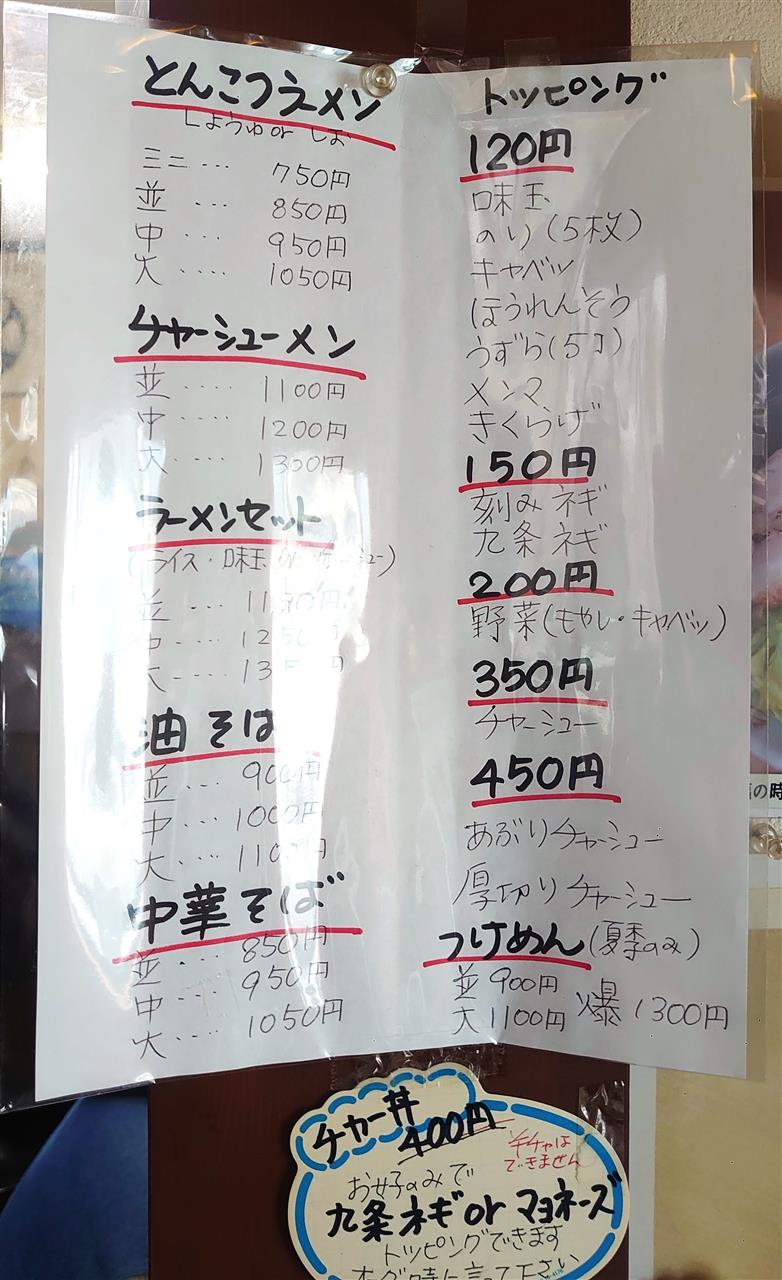 とんこつラーメン
しょうゆ or しお
ミニ ‥‥ 750円
並 ‥‥ 850円
中 ‥‥ 950円
大 ‥‥ 1050円
チャーシューメン
並 ‥‥ 1100円
中 ‥‥ 1200円
大 ‥‥ 1300円
ラーメンセット
(ライス・味玉
並 ‥‥
中 ‥‥
大 ‥‥
油そば
並 ‥‥ 900円
中 ‥‥ 1000円
大 ‥‥ 1100円
中華そば
並 ‥‥ 850円
中 ‥‥ 950円
大 ‥‥ 1050円
トッピング
120円
味玉
のり(5枚)
キャベツ
ほうれんそう
うずら(5コ)
メンマ
きくらげ
150円
刻みネギ
九条ネギ
200円
野菜(もやし・キャベツ)
350円
チャーシュー
450円
あぶりチャーシュー
厚切りチャーシュー
つけめん(夏季のみ)
並 900円
大 1100円 爆 1300円
の時
チャー丼
400円
半チャは
できません
お好みで
九条ネギ or マヨネーズ
トッピングできます